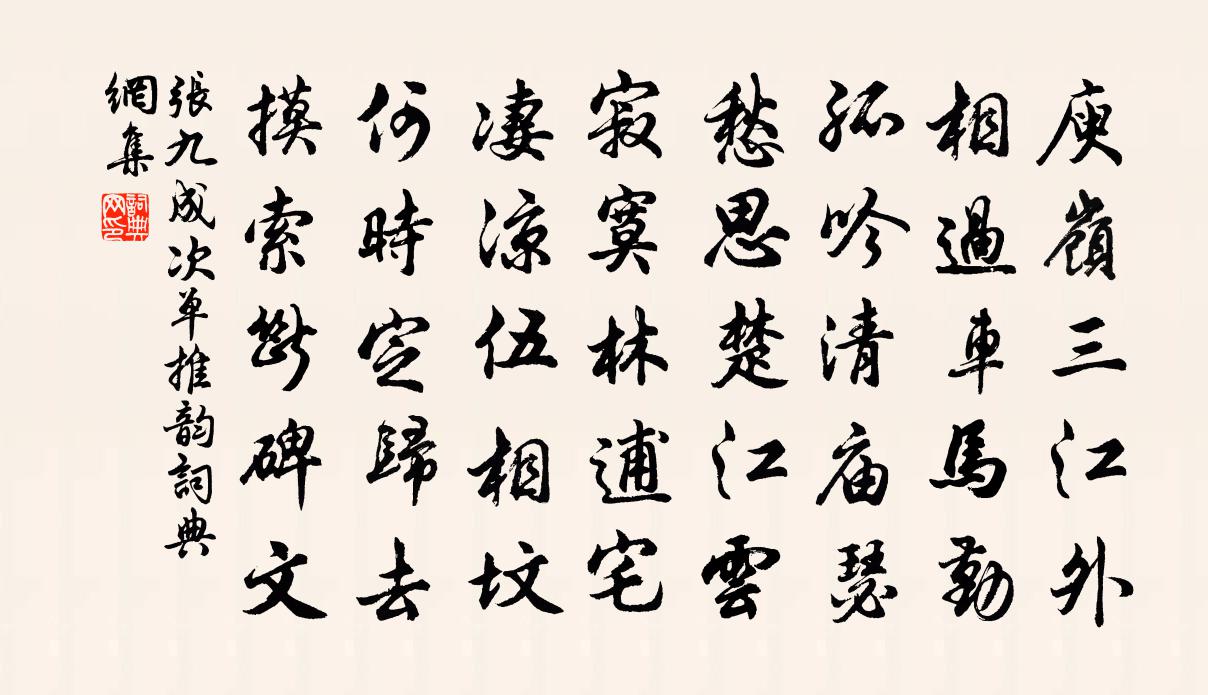 庾嶺三江外
相過車馬勤
孤吟清庙瑟
愁思楚江雲
寂寞林逋宅
凄涼伍相坟
何時定歸去
摸索斷碑文
張九成次单推韵詞典
網集
詞典
网印